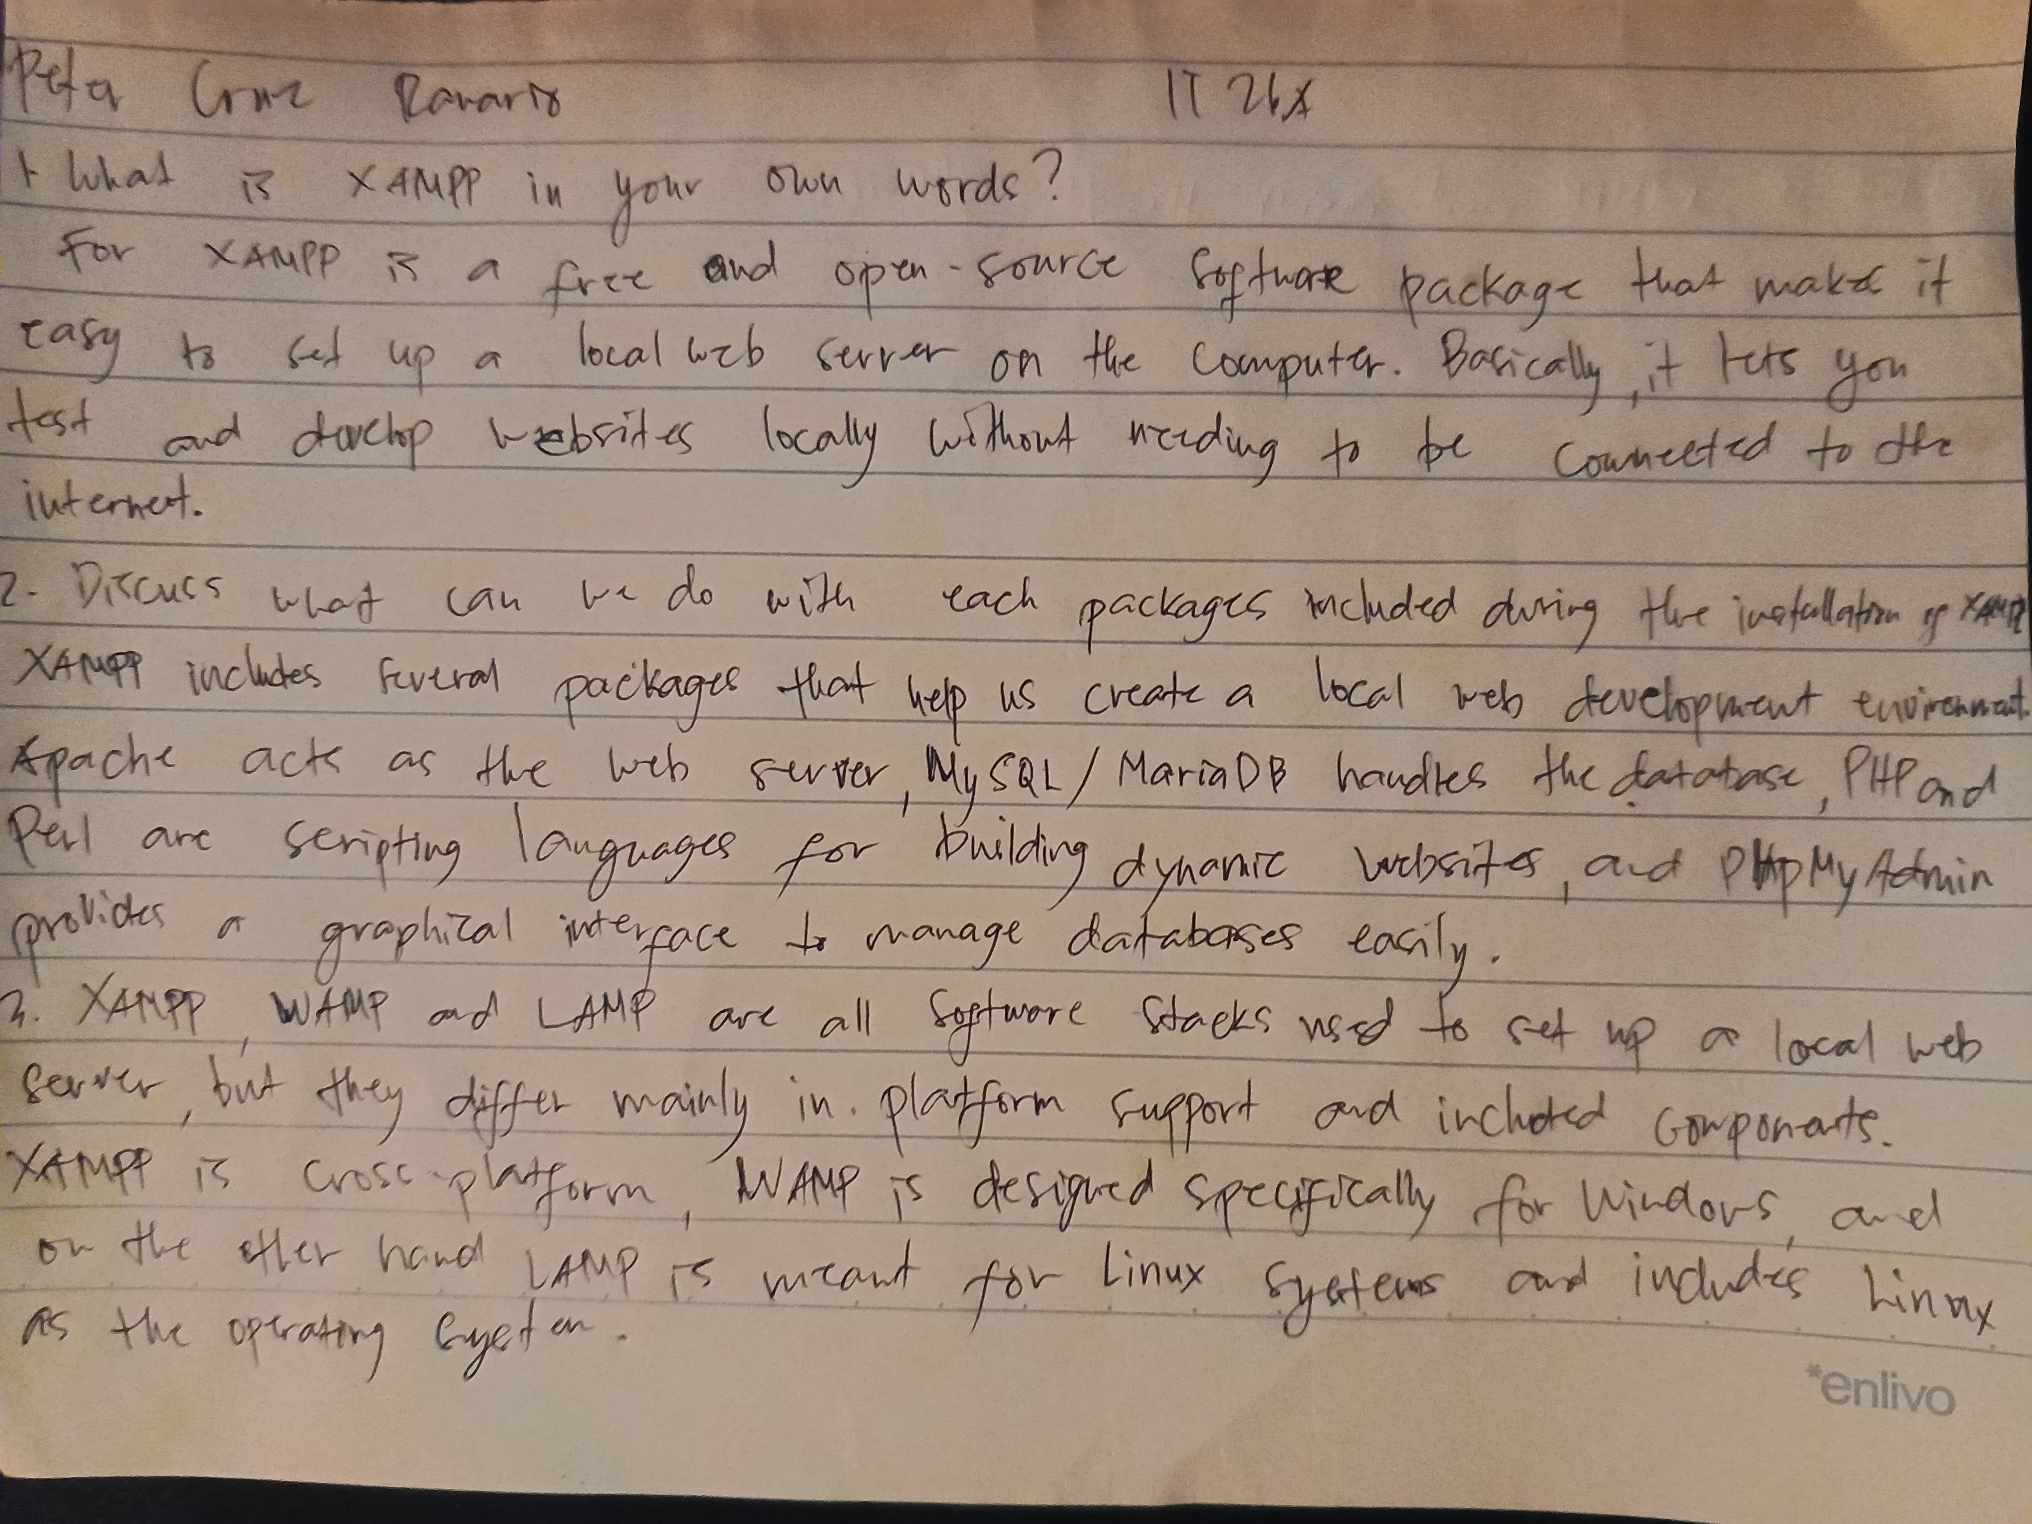 Peter Cruz Ranario IT 26x
1 What is XAMPP in your own words?
For XAMPP is a free and open-source software package that makes it
easy to set up a local web server on the computer. Basically, it lets you
test and develop websites locally without needing to be connected to the
internet.
2. Discuss what can we do with each packages included during the installation of XAMPP
XAMPP includes several packages that help us create a local web development environment.
Apache acts as the web server, MySQL/MariaDB handles the database, PHP and
Perl are scripting languages for building dynamic websites, and PHpMyAdmin
provides a graphical interface to manage databases easily.
3. XAMPP, WAMP and LAMP are all software stacks used to set up a local web
server, but they differ mainly in platform support and included components.
XAMPP is cross-platform, WAMP is designed specifically for Windows, and
on the other hand LAMP is meant for Linux systems and includes Linux
as the operating system.
*enlivo